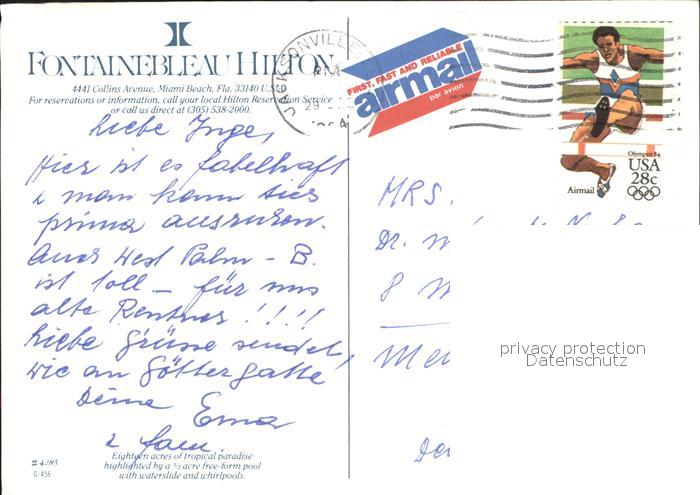 FONTAINEBLEAU HILTON
4441 Collins Avenue, Miami Beach, Fla. 33140 U.S.A.
For reservations or information, call your local Hilton Reservation Service
or call us direct at (305) 538-2000.
Liebe Inge,
Hier ist es fabelhaft
u man kann sich
prima ausruhen.
Auch West Palm - B.
ist toll - für uns
alte Rentner!!!!
Liebe Grüsse sendet,
wie an Göttergatte
Deine Erna
u Fam.
Eighteen acres of tropical paradise
highlighted by a ½ acre free-form pool
with waterslide and whirlpools.
# 4283
G-456
JACKSONVILLE
PM
29
FIRST, FAST AND RELIABLE
airmail
par avion
Olympics 84
USA
28c
Airmail
MRS.
Dr.
8
privacy protection
Datenschutz